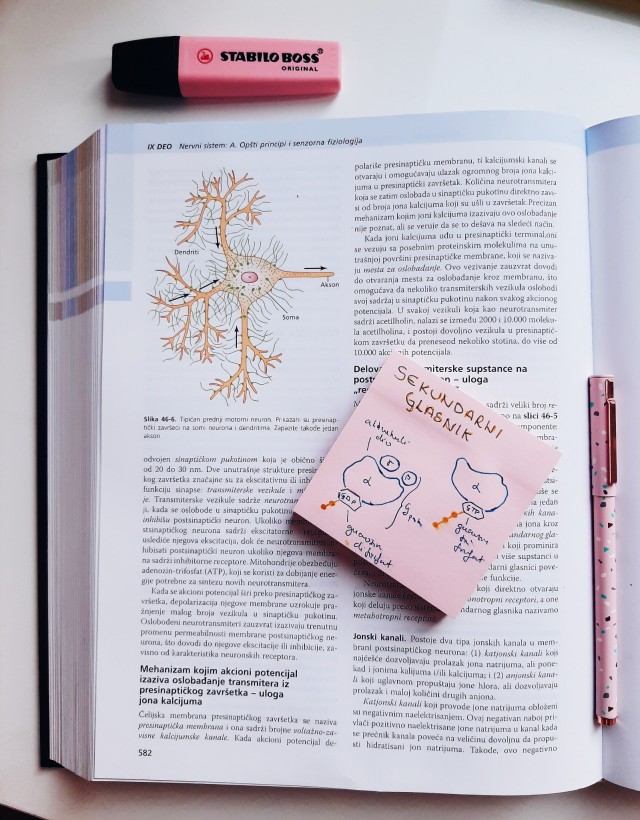 STABILO BOSS®
ORIGINAL
IX DEO Nervni sistem: A. Opšti principi i senzorna fiziologija
Dendriti
Akson
Soma
Slika 46-6. Tipičan prednji motorni neuron. Prikazani su presinap-
tički završeci na somi neurona i dendritima. Zapazite takođe jedan
akson
odvojen sinaptičkom pukotinom koja je obično š
od 20 do 30 nm. Dve unutrašnje strukture presi
kog završetka značajne su za ekscitatornu ili inh
funkciju sinapse: transmiterske vezikule i m
je. Transmiterske vezikule sadrže neurotra
ji, kada se oslobode u sinaptičku pukotinu
inhibiše postsinaptički neuron. Ukoliko
stsinaptičkog neurona sadrži ekscitatorne
uslediće njegova ekscitacija, dok će neurotransmi
hibisati postsinaptički neuron ukoliko njegova membra
na sadrži inhibitorne receptore. Mitohondrije obezbeđuju
adenozin-trifosfat (ATP), koji se koristi za dobijanje ener-
gije potrebne za sintezu novih neurotransmitera.
Kada se akcioni potencijal širi preko presinaptičkog za-
vršetka, depolarizacija njegove membrane uzrokuje pra-
žnjenje malog broja vezikula u sinaptičku pukotinu.
Oslobođeni neurotransmiteri zauzvrat izazivaju trenutnu
promenu permeabilnosti membrane postsinaptičkog ne-
urona, što dovodi do njegove ekscitacije ili inhibicije, za-
visno od karakteristika neuronskih receptora.
Mehanizam kojim akcioni potencijal
izaziva oslobađanje transmitera iz
presinaptičkog završetka – uloga
jona kalcijuma
Ćelijska membrana presinaptičkog završetka se naziva
presinaptička membrana i ona sadrži brojne voltažno-za-
visne kalcijumske kanale. Kada akcioni potencijal de-
582
polariše presinaptičku membranu, ti kalcijumski kanali se
otvaraju i omogućavaju ulazak ogromnog broja jona kalci-
juma u presinaptički završetak. Količina neurotransmitera
koja se zatim oslobađa u sinaptičku pukotinu direktno zavi-
si od broja jona kalcijuma koji su ušli u završetak. Precizan
mehanizam kojim joni kalcijuma izazivaju ovo oslobađanje
nije poznat, ali se veruje da se to dešava na sledeći način.
Kada joni kalcijuma uđu u presinaptički terminal, oni
se vezuju sa posebnim proteinskim molekulima na unu-
trašnjoj površini presinaptičke membrane, koji se naziva-
ju mesta za oslobađanje. Ovo vezivanje zauzvrat dovodi
do otvaranja mesta za oslobađanje kroz membranu, što
omogućava da nekoliko transmiterskih vezikula oslobodi
svoj sadržaj u sinaptičku pukotinu nakon svakog akcionog
potencijala. U svakoj vezikuli koja kao neurotransmiter
sadrži acetilholin, nalazi se između 2000 i 10.000 moleku-
la acetilholina, i postoji dovoljno vezikula u presinaptič-
kom završetku da preneseod nekoliko stotina, do više od
10.000 akcionih potencijala.
Delov miterske supstance na
posts n – uloga
„re
sadrži veliki broj re-
no na slici 46-5
omponente:
SEKUNDARNI
GLASNIK
α
γ
β
GDP
α
GTP
koji direktno otvaraju
jonske kanale onotropni receptori, a one
koji deluju preko ndarnog glasnika nazivamo
metabotropni receptori
Jonski kanali. Postoje dva tipa jonskih kanala u mem-
brani postsinaptičkog neurona: (1) katjonski kanali koji
najčešće dozvoljavaju prolazak jona natrijuma, ali pone-
kad i jonima kalijuma i/ili kalcijuma; i (2) anjonski kana-
li koji uglavnom propuštaju jone hlora, ali dozvoljavaju
prolazak i maloj količini drugih anjona.
Katjonski kanali koji provode jone natrijuma obloženi
su negativnim naelektrisanjem. Ovaj negativan naboj pri-
vlači pozitivno naelektrisane jone natrijuma u kanal kada
se prečnik kanala poveća na veličinu dovoljnu da propu-
sti hidratisani jon natrijuma. Takođe, ovo negativno